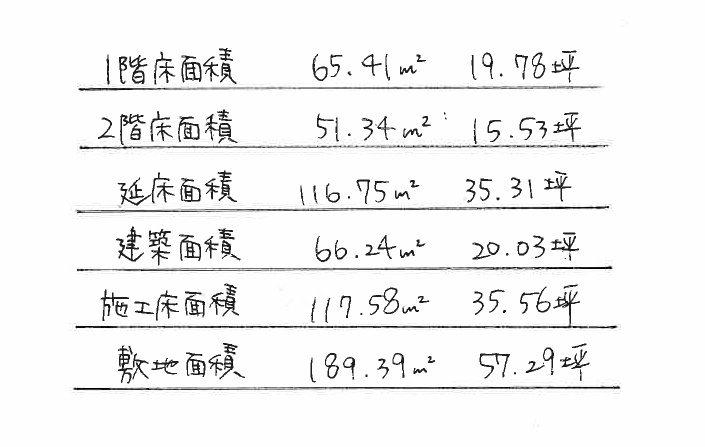 1階床面積 65.41m² 19.78坪
2階床面積 51.34m² 15.53坪
延床面積 116.75m² 35.31坪
建築面積 66.24m² 20.03坪
施工床面積 117.58m² 35.56坪
敷地面積 189.39m² 57.29坪